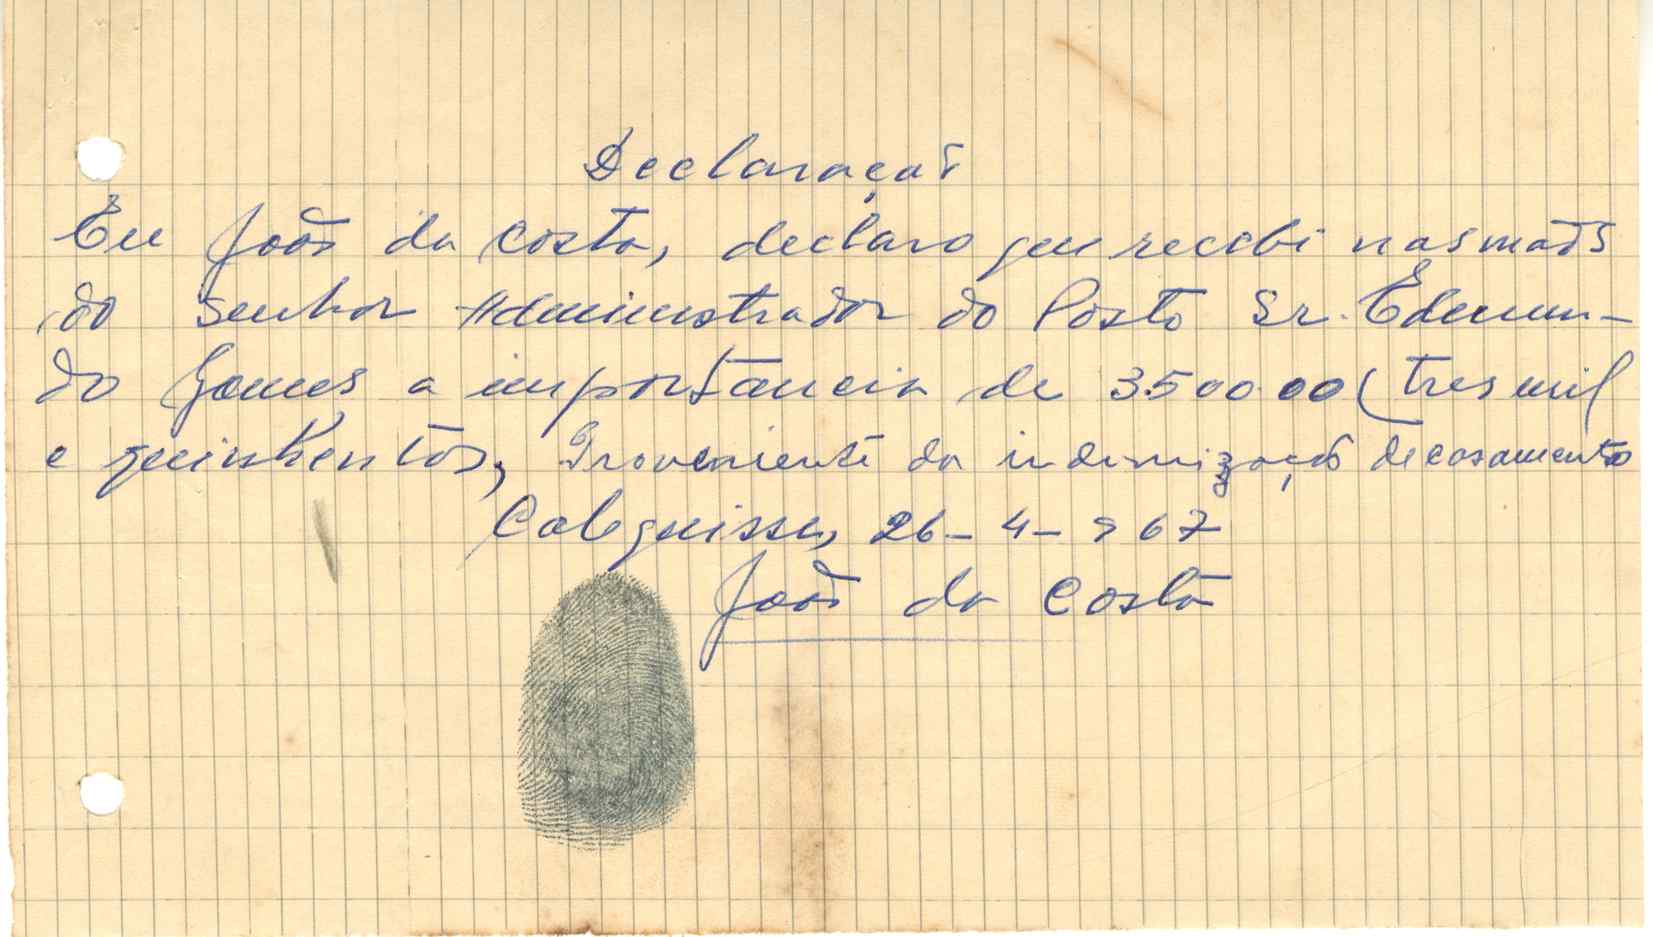 Declaração
Eu João da Costa, declaro que recebi nas mãos
do Senhor Administrador do Posto Sr. Edmun-
do Gomes a importância de 3500.00 (tres mil
e quinhentos, Proveniente da indemização de casamento
Calequisse, 26-4-967
João da Costa